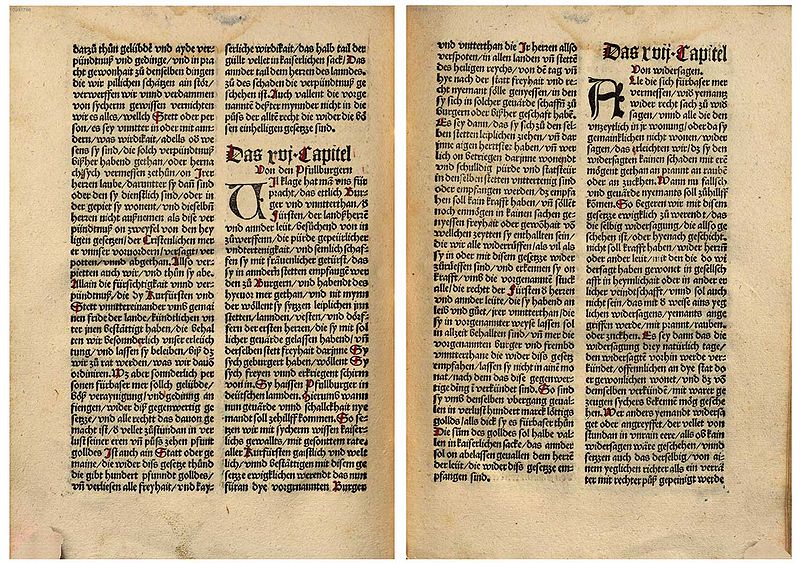 darzů thůn gelübdd vnd ayde ver
pündtnuß vnd gedinge/ vnd in pra
cht gewonhait zů denselben dingen
die wir pillichen schätzen ain stör/
verwerffen wir vnd verdammen
von sychern gewissen vernichten
wir es alles/ welich Stett oder per
son/ es sey vnnter in oder mit ann-
dern/ was wirdikait/ adells ob we
sens sy sind/ die solch verpündtnuß
bißher habend gethan/ oder herna
chfsych vermessen zethůn/ on Irer
herren laube/ darunter sy dañ sind
oder den sy dienstlich sind/ oder in
der gepiet sy wonen/ vnd dieselbñ
herren nicht außnemen als dise ver
pündtnuß on zweyfel von den hey
ligen gesetzen/ der Cristenlichen mer
er vnnser voruordern/ versagt ver
potten/ vnnd abgethan. Also ver-
pietten auch wir/ vnd thůn sy abe.
Allain die fürsichtigkait vnnd ver-
pündtnuß/ die dy Kurfürsten vnd
Stett vnntereinander vmb gemai
nen fride der lannde/ kündtlichen vn
ter jnen bestättigt haben/ die behal
ten wir besonnderlich vnser erleüch
tung/ vnd lassen sy beleiben/ biß dz
wir zů rat werden/ was wir dauõ
ordiniren. Wz aber sonnderlich per
sonen fürbaser mer sollich gelübde/
böß verayningung/ vnd gedinng an
fiengen/ wider diß gegenwertig ge
setzte/ vnd alle recht das dauon ge
macht ist/ ð vellet zůstundan in ver
lust seiner eren vñ půß zehen pfunt
golldes/ Ist auch ain Statt oder ge
maine/ die wider diß gesetze thůnd
die gibt hundert pfunnd golldes/
vñ verliesen alle freyhait/ vnd kay-
serliche wirdikait/ das halb tail der
güllt vellet in kaiserlichen sack/ Das
annder tail dem herren des lanndes.
zů des schaden die verpündtnuß ge
schehen ist. Auch wallent die vorge
nannte dester mynnder nicht in die
půß der alltē recht die wider die bö
sen einhelligen gesetze sind.
Das xvj. Capitel
Von den Pfullburgern
UIl klage hat mā vns für
pracht/ das ettlich Bur-
ger vnd vnntterthan/ ð
Fürsten/ der landßherrē
vnd annder leüt/ besüchend von in
zů werffen/ die pürde gepürlicher
vnderdenigkait/ vnd semlich schaf-
fen sy mit fräuenlicher getürst/ das
sy in anndern stetten empfanng wer
den zů Burgern/ vnd habendt des
hyeuor mer gethan/ vnd nit mynn
der wöllent sy sytzen leiplichen jnn
stetten/ lannden/ vesten/ vnd dörf-
fern der ersten herren/ die sy mit sol
licher geuärde gelassen habend/ vñ
derselben stett freyhait darjnne Sy
sych geburgert haben/ wöllent Sy
sych freyen vnnd erkriegent schirm
von in. Sy haissen Pfullburger in
deütschen lannden. Hierum̄ wann
nun geuärde vnnd schallckhait nye
mandt soll zehülff kommen. So se-
tzen wir mit sycherm wissen kaiser-
lichs gewallts/ mit gesontem rate.
aller Kurfürsten gaistlich vnd welt
lich/ vnnd bestättigen mit disem ge
setze ewigklichen werendt das nun
füran dye vorgenannten Burger
vnd vnttertan die Ir herren allso
verspoten/ in allen landen vñ stettē
des heiligen reychs/ von dē tag vñ
hye nach der statt freyhait vnd re-
cht nyemant sölle genyessen/ in den
sy sich in solcher geuärde schaffñ zů
burgern oder bißher geschaft habē.
Es sey dann/ das sy sich zů den sel-
ben stetten leiplichen ziehen/ vñ dar
jnn aigen herrtstee haben/ vñ wer-
lich on betriegen darjnne wonendt
vnd schulldig pürde vnd statsteür
in den selben stetten vnttertenig sind
oder empfangen werden/ dz empfa
hen soll kain krafft haben/ vñ söllēt
noch enmögen in kainen sachen ge-
nyessen freyhait oder gewonhait võ
welichen zeytten sy enthallten sein/
die wir alle widerrůffen/ als vil als
sy in oder mit disem gesetze wider
zůlessen sind/ vnd erkennen sy on
krafft/ vmß die vorgenannt stuck
alle/ die recht der Fürsten ð herren
vnd annder leüt/ die sy habend an
leib vnd gůt/ jrer vnntterthan/ die
sy in vorgenannter weyß lassen sol
in alzeit behalten sind/ vñ mer die
vorgenannten burger vnd frembd
vnntterthane die wider diß gesetz
empfahen/ lassen sy nicht in aine mo
nat/ nach dem das dise gegenwer-
tige ding ī verkündet sind. So sind
sy vmß denselben vbergang geual-
len in verlust hundert marck lötigs
golldes/ alls dick sy es fürbaser thůn
Die süm des golldes sol halbe vallen
in kaiserlichen sacke/ das annder
sol on abelassen geuallen dem herrē
der leüt/ die wider diß gesetze em-
pfangen sind.
Das xvij. Capitel
Von widersagen.
ALle die sich fürbaser mer
vermessen/ wiß yemantz
wider recht sach zů wid
sagen/ vnnd alle die den
vnzeytlich in jr wonung/ oder da sy
gemainklichen nicht wonen/ wider
sagen/ das erleichten wir/ dz sy den
widersagten kainen schaden mit erē
mögent gethan an prannt an raubē
oder an zucken. Wann nu falsch
vnd geuärde nyemants soll zůhilff
komen. So begeren wir mit disem
gesetze ewigklich zů werendt/ das
die selbig widersagung/ die also ge
schehen ist/ oder hyenach geschicht.
nicht soll krafft haben/ wider herrē
oder annder leüt/ mit den die do wi
dersagt haben gewonet in gesellsch
afft/ in heymlichait oder in ander er
licher vrindtschafft/ vnnd sol auch
nicht sein/ das mā ð weise ains yeg
lichen widersagens/ yemants ange
griffen werde/ mit prannt/ rauben.
oder zucken. Es sey dann das die
widersagung drey natürlich tage/
den widersagtē vorhin werde ver-
kündet/ offennlichen an dye stat do
er gewonlichen wonet/ vnd dz võ
denselben verkünden/ mit warer ge
zeugen sychers bekennē mög gesche
hen. Wer anders yemandt widersa
get oder angreyffet/ der vellet von
stundan in vnrain eere/ alls ob kain
widersagen wäre geschehen/ vnnd
setzen auch das derselbig/ von ai-
nem yeglichen richter alls ein verrä
ter mit rechter půß gepeinigt werde